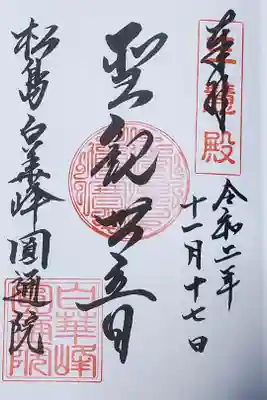 奉拝
三慧殿
令和二年
十一月十七日
聖観世音
松島白華峰圓通院
白華峰
圓通院